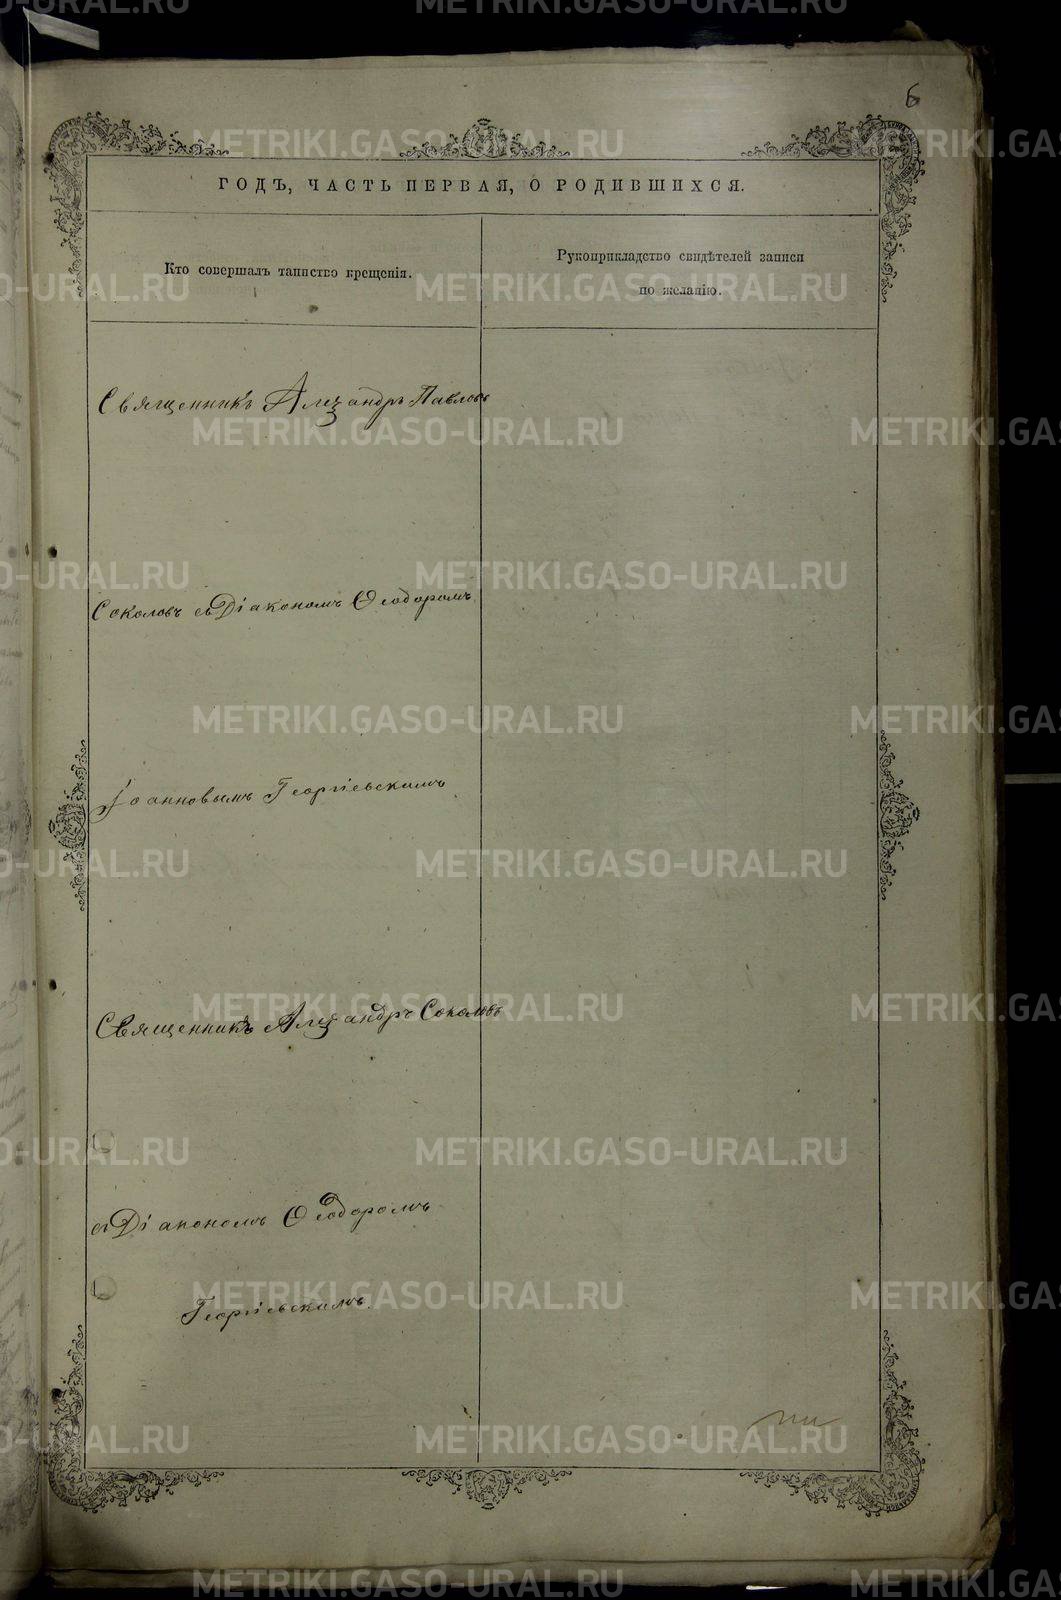 6
ГОДЪ, ЧАСТЬ ПЕРВАЯ, О РОДИВШИХСЯ.
Кто совершалъ таинство крещенія.
Рукоприкладство свидѣтелей записи
по желанію.
Священникъ Алеѯандръ Павловъ
Соколовъ съ Діакономъ Ѳеодоромъ
Іоанновымъ Георгіевскимъ
Священникъ Алеѯандръ Соколовъ
съ Діакономъ Ѳеодоромъ
Георгіевскимъ.
METRIKI.GASO-URAL.RU